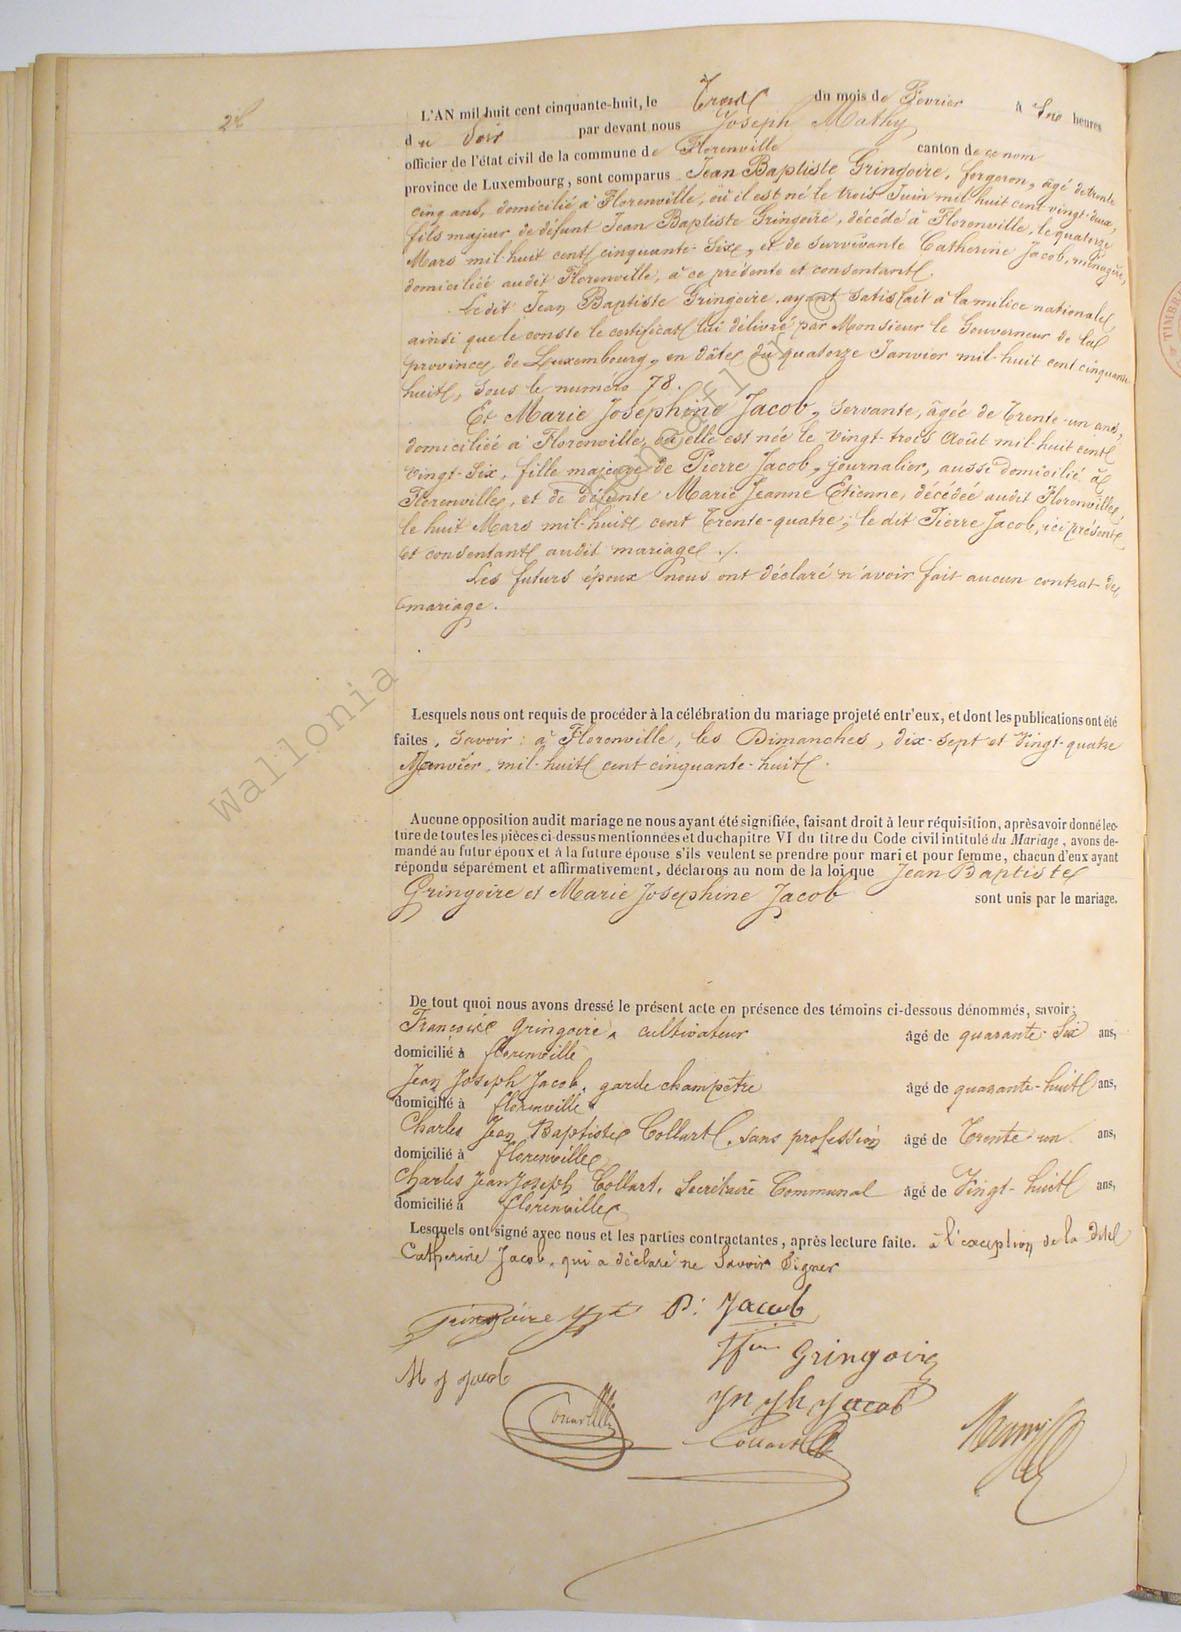 2e
L'AN mil huit cent cinquante-huit, le Trois du mois de Février à Six heures
du Soir par devant nous Joseph Mathy
officier de l'état civil de la commune de Florenville canton de ce nom
province de Luxembourg, sont comparus Jean Baptiste Gringoire, forgeron, âgé de trente
cinq ans, domicilié à Florenville, où il est né le trois Juin mil huit cent vingt-deux,
fils majeur de défunt Jean Baptiste Gringoire, décédé à Florenville, le quatorze
Mars mil-huit cent cinquante-Six, et de survivante Catherine Jacob, ménagère,
domiciliée audit Florenville, à ce présente et consentante.
Ledit Jean Baptiste Gringoire ayant satisfait à la milice nationale
ainsi que le conste le certificat lui délivré par Monsieur le Gouverneur de la
province de Luxembourg, en date du quatorze Janvier mil-huit cent cinquante
huit, sous le numéro 78.
Et Marie Joséphine Jacob, servante, âgée de Trente-un ans,
domiciliée à Florenville, où elle est née le vingt-trois Août mil-huit cent
vingt-Six, fille majeure de Pierre Jacob, journalier, aussi domicilié à
Florenville, et de défunte Marie Jeanne Etienne, décédée audit Florenville,
le huit Mars mil-huit cent Trente-quatre; le dit Pierre Jacob, ici présent
et consentant audit mariage ./.
Les futurs époux nous ont déclaré n'avoir fait aucun contrat de
mariage.
Lesquels nous ont requis de procéder à la célébration du mariage projeté entr'eux, et dont les publications ont été
faites, savoir: à Florenville, les Dimanches, dix-sept et Vingt-quatre
Janvier, mil-huit cent cinquante-huit.
Aucune opposition audit mariage ne nous ayant été signifiée, faisant droit à leur réquisition, après avoir donné lec-
ture de toutes les pièces ci-dessus mentionnées et du chapitre VI du titre du Code civil intitulé du Mariage, avons de-
mandé au futur époux et à la future épouse s'ils veulent se prendre pour mari et pour femme, chacun d'eux ayant
répondu séparément et affirmativement, déclarons au nom de la loi que Jean Baptiste
Gringoire et Marie Josephine Jacob sont unis par le mariage.
De tout quoi nous avons dressé le présent acte en présence des témoins ci-dessous dénommés, savoir:
François Gringoire, cultivateur âgé de quarante-Six ans,
domicilié à florenville
Jean Joseph Jacob, garde champêtre âgé de quarante-huit ans,
domicilié à florenville
Charles Jean Baptiste Collart, sans profession âgé de Trente-un ans,
domicilié à florenville
Charles Jean Joseph Collart, Secrétaire Communal âgé de Vingt-huit ans,
domicilié à florenville
Lesquels ont signé avec nous et les parties contractantes, après lecture faite. à l'exception de la dite
Catherine Jacob, qui a déclaré ne Savoir Signer
Gringoire P. Jacob
Gringoire
M J Jacob
Jacob
Collart
Wallonia
TIMBR